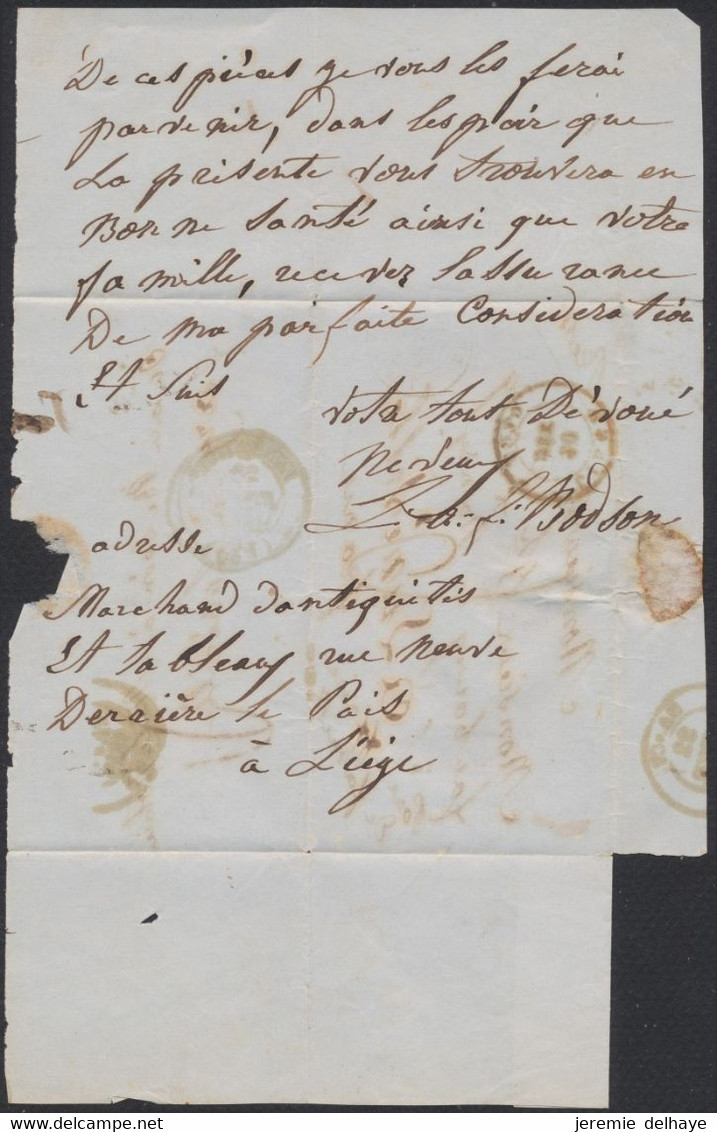 De ces pièces je vous les ferai
parvenir, dans lespoir que
La présente vous trouvera en
Bonne Santé ainsi que votre
famille, recevez lassurance
De ma parfaite Considération
Et suis
votre tout Dévoué
neveux
Bodson
adresse
Marchand dantiquités
Et tableaux rue neuve
Derrière le Pais
à Liége
jeremie delhaye